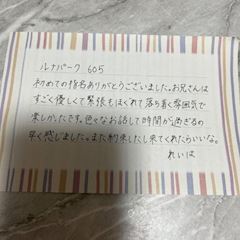 ルナパーク 605
初めての指名ありがとうございました。お兄さんは
すごく優しくて緊張もほぐれて落ち着く雰囲気で
楽しかったです。色々なお話して時間が過ぎるの
早く感じました。また約束したし来てくれたらいいな。
れいは